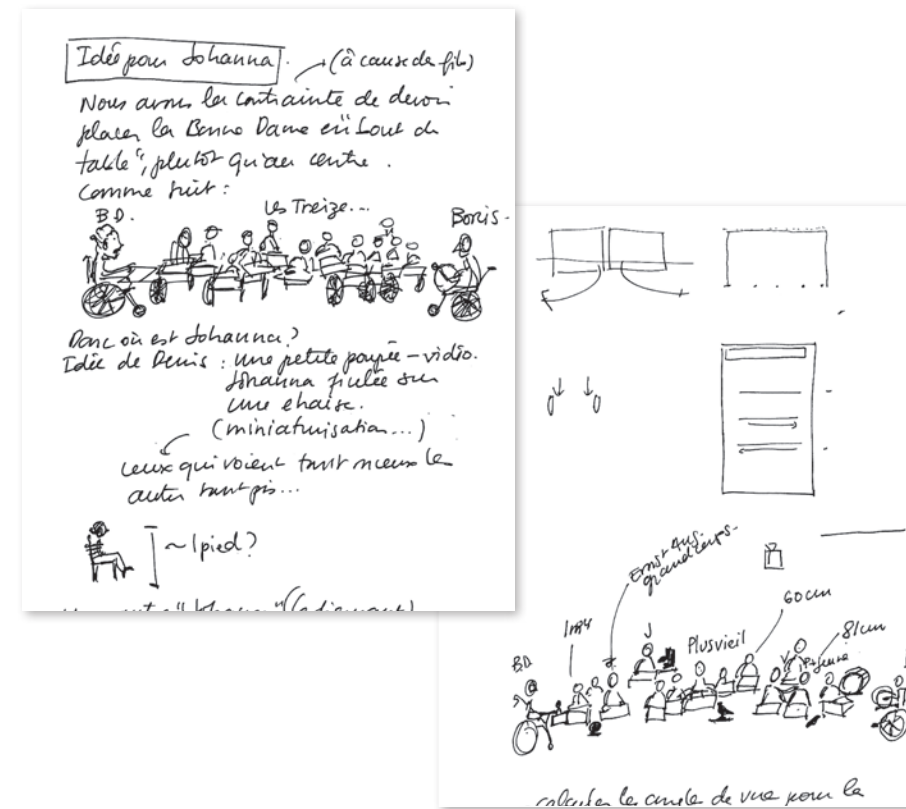 Idée pour Johanna.
(à cause de fils)
Nous avons la contrainte de devoir
placer la Bonne Dame en "bout de
table", plutôt qu'au centre.
Comme suit :
B.D.
Les Treize...
Boris-
Donc où est Johanna?
Idée de Denis : une petite poupée-vidéo.
Johanna ficelée sur
une chaise.
(miniaturisation...)
ceux qui voient tant mieux les
autres tant pis...
~1 pied?
Ernst Aus.
grand temps-
60cm
1m4
J
Plusvieil
81cm
BD
V
P+jeune
calculer le angle de vue pour la